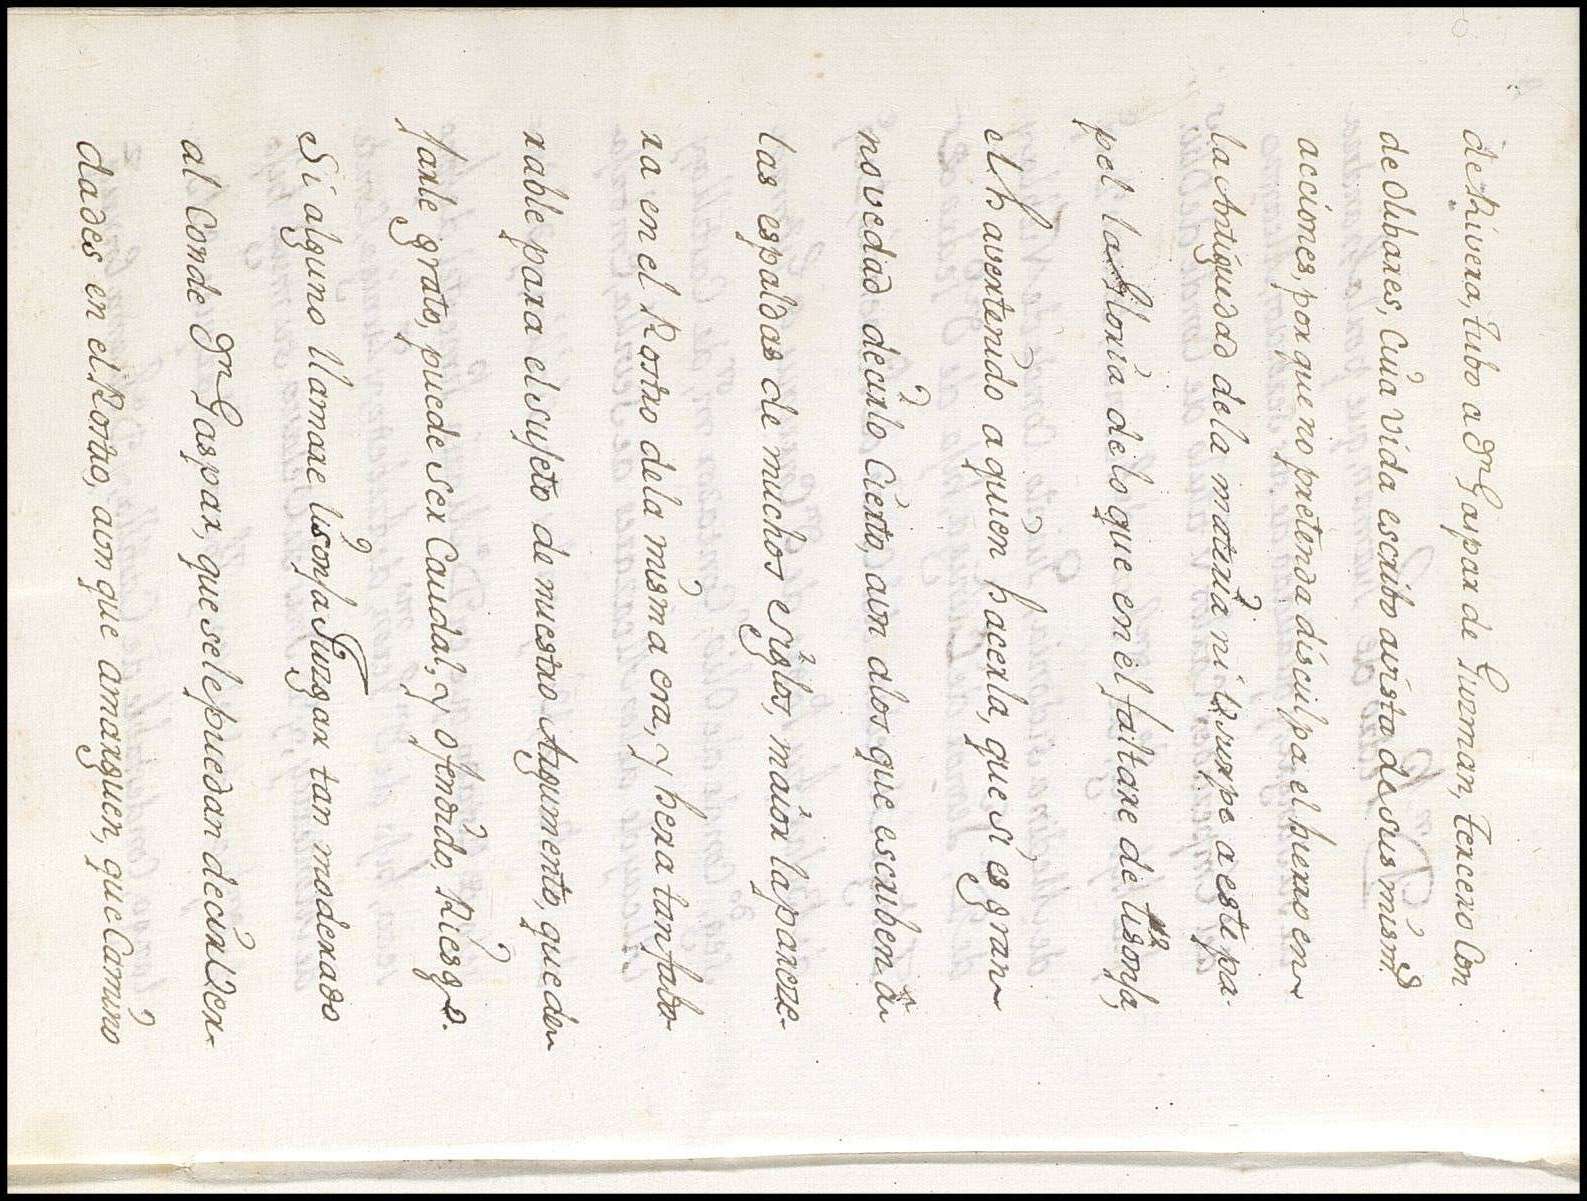 de Rivera, tubo a Dn Gaspar de Guzman, tercero Con
de Olibares, Cuia vida escribo avista de sus mism.s
acciones, por que no pretenda disculpa el hierro en
la Antiguedad de la materia ni usurpe a este pa-
pel la Gloria de lo que en el faltare de lisonja,
el haverternido a quien hacerla, que si es gran
novedad decirlo Cierto, aun alos que escriben de
las espaldas de muchos siglos, maior la parece-
ra en el Rostro dela misma era, y hera tan fabo-
rable para el sujeto de nuestro Argumento, que den
Jarle grato, puede ser Caudal, y ofendido, Riesgo.
Si alguno llamare lisonja Juzgar tan moderado
al Conde Dn Gaspar, que se le puedan decir Ver-
dades en el Rostro, aun que amarguen, que Camino